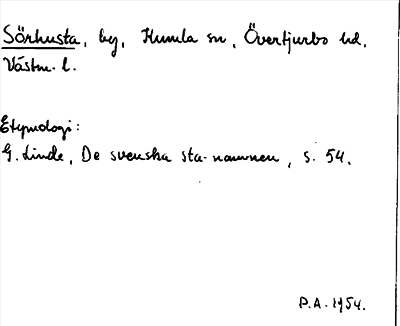 Sörhusta, by, Kumla sn, Övertjurbo hd,
Västm. l.
Etymologi:
G. Linde, De svenska sta-namnen, s. 54.
P.A. 1954.